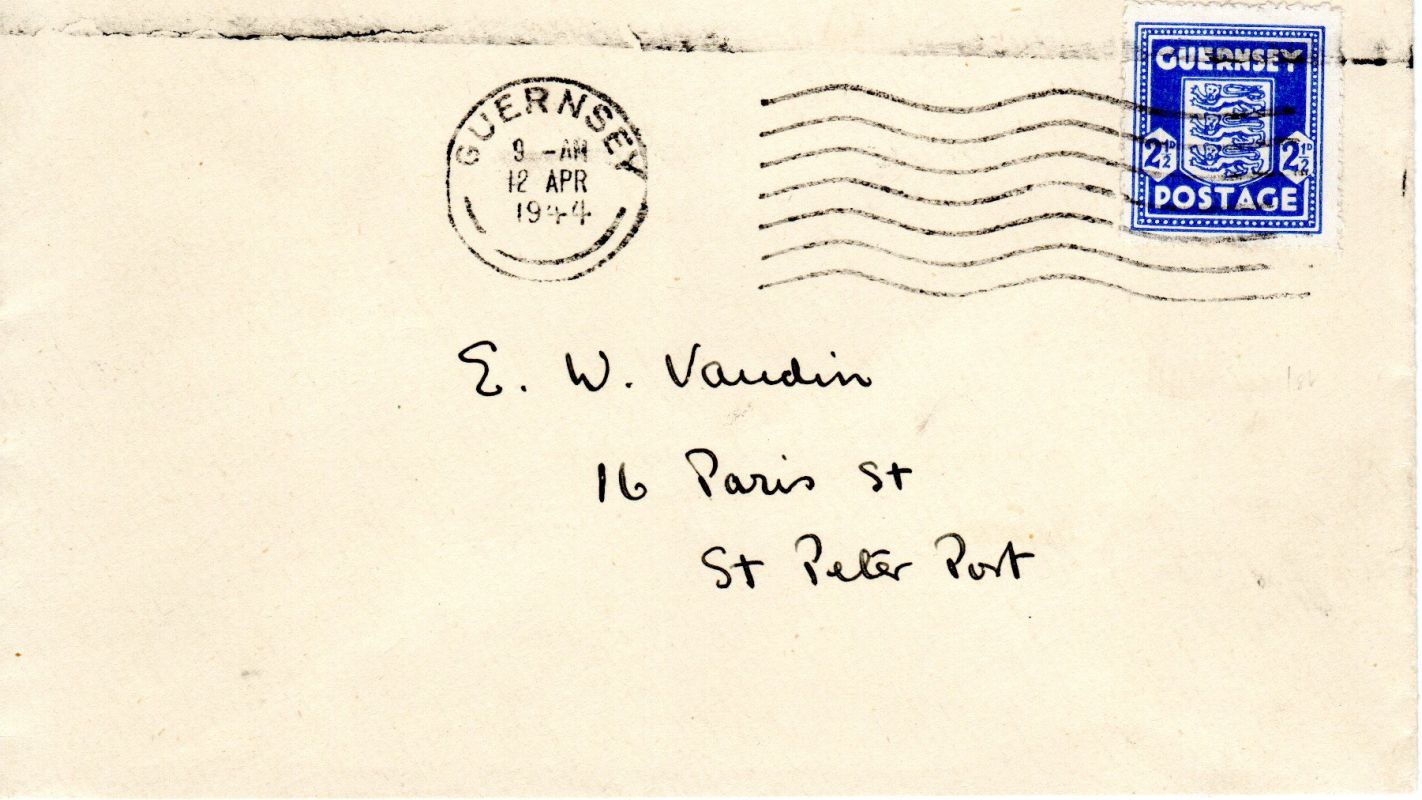 GUERNSEY
9 - AM
12 APR
1944
GUERNSEY
2½D 2½D
POSTAGE
E. W. Vaudin
16 Paris St
St Peter Port